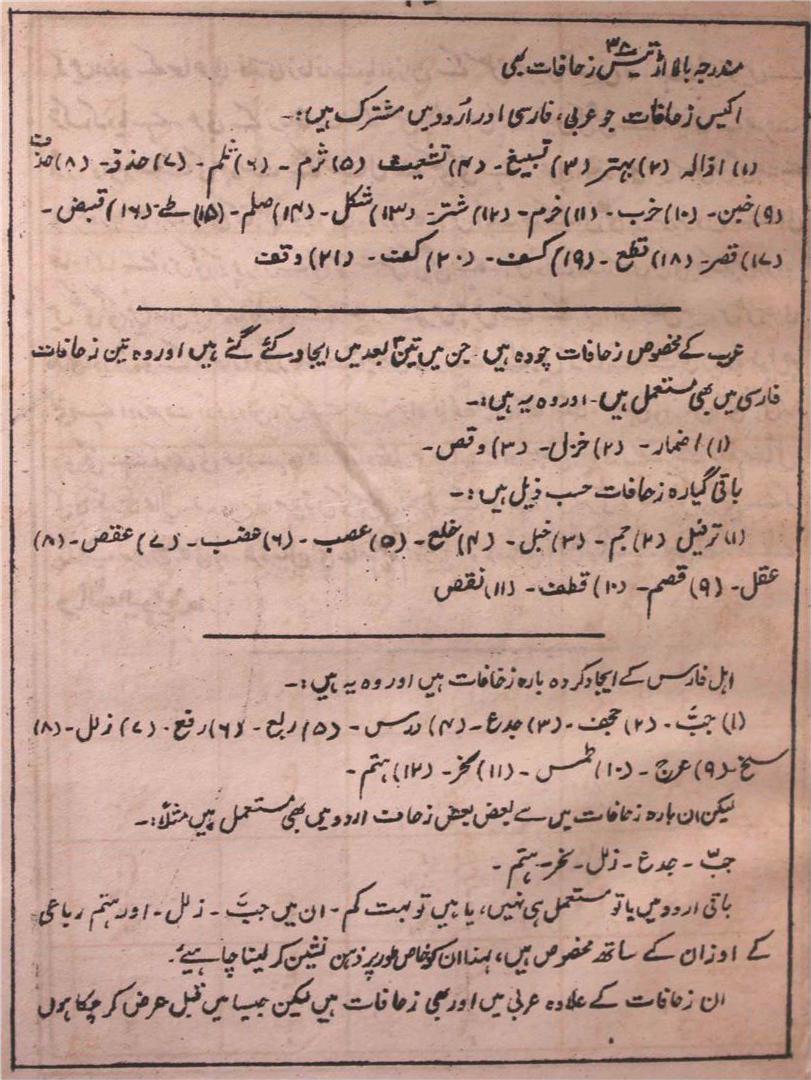 مندرجہ بالا اڑتیس ۳۸ زحافات بھی
اکیس زحافات جو عربی، فارسی اور اُردو میں مشترک ہیں:۔
(۱) اذالہ (۲) بہتر (۳) تسبیغ۔ (۴) تشعیث (۵) ثرم ۔ (۶) ثلم ۔ (۷) حذذ۔ (۸) حذف
(۹) خبن۔ (۱۰) خرب ۔ (۱۱) خرم۔ (۱۲) شتر۔ (۱۳) شکل ۔ (۱۴) صلم۔ (۱۵) طے۔ (۱۶) قبض۔
(۱۷) قصر۔ (۱۸) قطع ۔ (۱۹) کسف ۔ (۲۰) کف ۔ (۲۱) وقف
عرب کے مخصوص زحافات چودہ ہیں۔ جن میں تین۳ بعد میں ایجاد کئے گئے ہیں اور وہ تین زحافات
فارسی میں بھی مستعمل ہیں۔ اور وہ یہ ہیں:۔
(۱) اضمار۔ (۲) خزل۔ (۳) وقص۔
باقی گیارہ زحافات حسب ذیل ہیں:۔
(۱) ترفیل (۲) جم۔ (۳) خبل۔ (۴) خلع۔ (۵) عصب۔ (۶) عضب۔ (۷) عقص۔ (۸)
عقل۔ (۹) قصم۔ (۱۰) قطف ۔ (۱۱) نقص
اہل فارس کے ایجاد کردہ بارہ زحافات ہیں اور وہ یہ ہیں:۔
(۱) جبّ ۔ (۲) جحف ۔ (۳) جدع۔ (۴) درس۔ (۵) ربع۔ (۶) رفع۔ (۷) زلل۔ (۸)
سلخ۔ (۹) عرج ۔ (۱۰) طمس ۔ (۱۱) نحر۔ (۱۲) ہتم۔
لیکن ان بارہ زحافات میں سے بعض بعض زحاف اردو میں بھی مستعمل ہیں مثلاً:۔
جبّ ۔ جدع ۔ زلل ۔ نحر۔ ہتم ۔
باقی اردو میں یا تو مستعمل ہی نہیں، یا ہیں تو بہت کم ۔ ان میں جبّ ۔ زلل ۔ اور ہتم رباعی
کے اوزان کے ساتھ مخصوص ہیں، لہذا ان کو خاص طور پر ذہن نشین کر لینا چاہیئے۔
ان زحافات کے علاوہ عربی میں اور بھی زحافات ہیں لیکن جیسا میں قبل عرض کر چکا ہوں